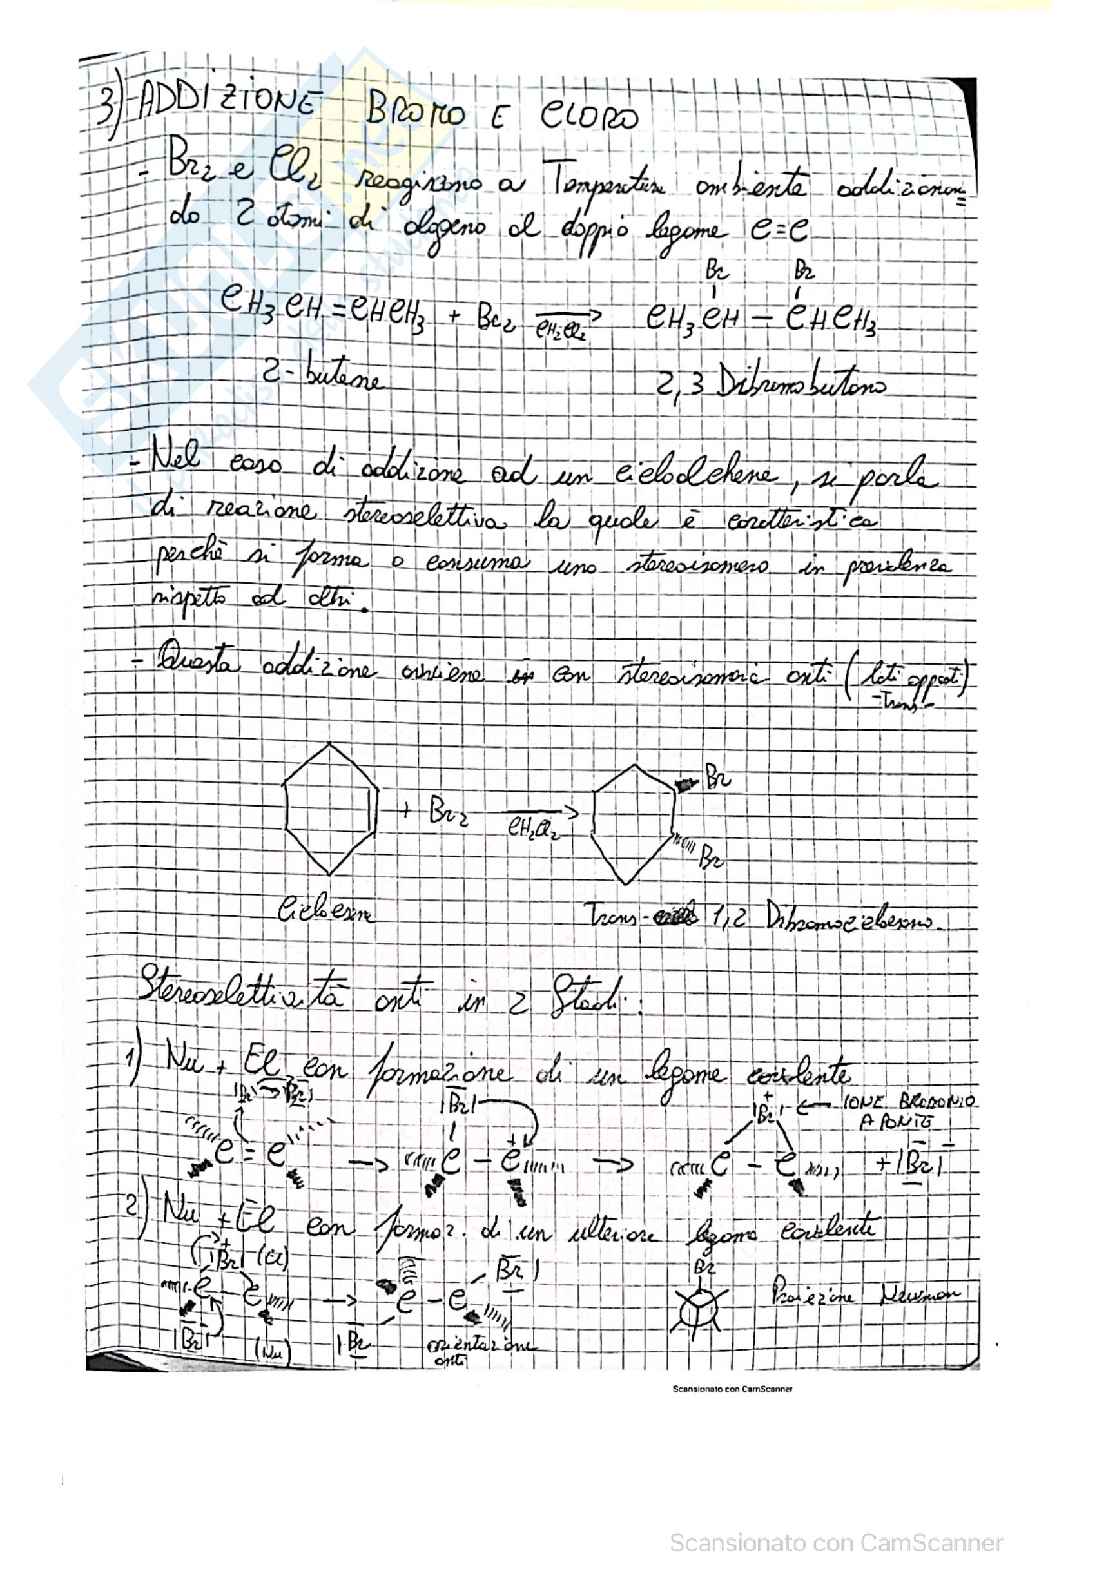 3) ADDIZIONE BROMO E CLORO
- Br₂ e Cl₂ reagiscono a Temperatura ambiente addizionan=
do 2 atomi di alogeno al doppio legame C=C
Br Br
CH₃CH=CHCH₃ + Br₂ CH₂Cl₂ → CH₃CH - CHCH₃
2-butene 2,3 Dibromobutano
- Nel caso di addizone ad un cicloalchene, si parla
di reazione stereoselettiva la quale è caratteristica
perchè si forma o consuma uno stereoisomero in prevalenza
rispetto ad altri.
- Questa addizione avviene con stereoisomeria anti (lati opposti)
-Trans-
+ Br₂ CH₂Cl₂ → Br
Br
Cicloesene Trans- 1,2 Dibromocicloesano.
Stereoselettività anti in 2 Stadi:
1) Nu + El con formazione di un legame covalente
|Br|→|Br| |Br| |Br|⁺ ← IONE BROMONIO
A PONTE
C = C → C - C⁺ → C - C + |Br|⁻
2) Nu + El con formaz. di un ulteriore legame covalente
|Br|⁺ (El) Br| Br
C - C → C - C Proiezione Newman
|Br| (Nu) |Br orientazione
anti
Scansionato con CamScanner
Scansionato con CamScanner